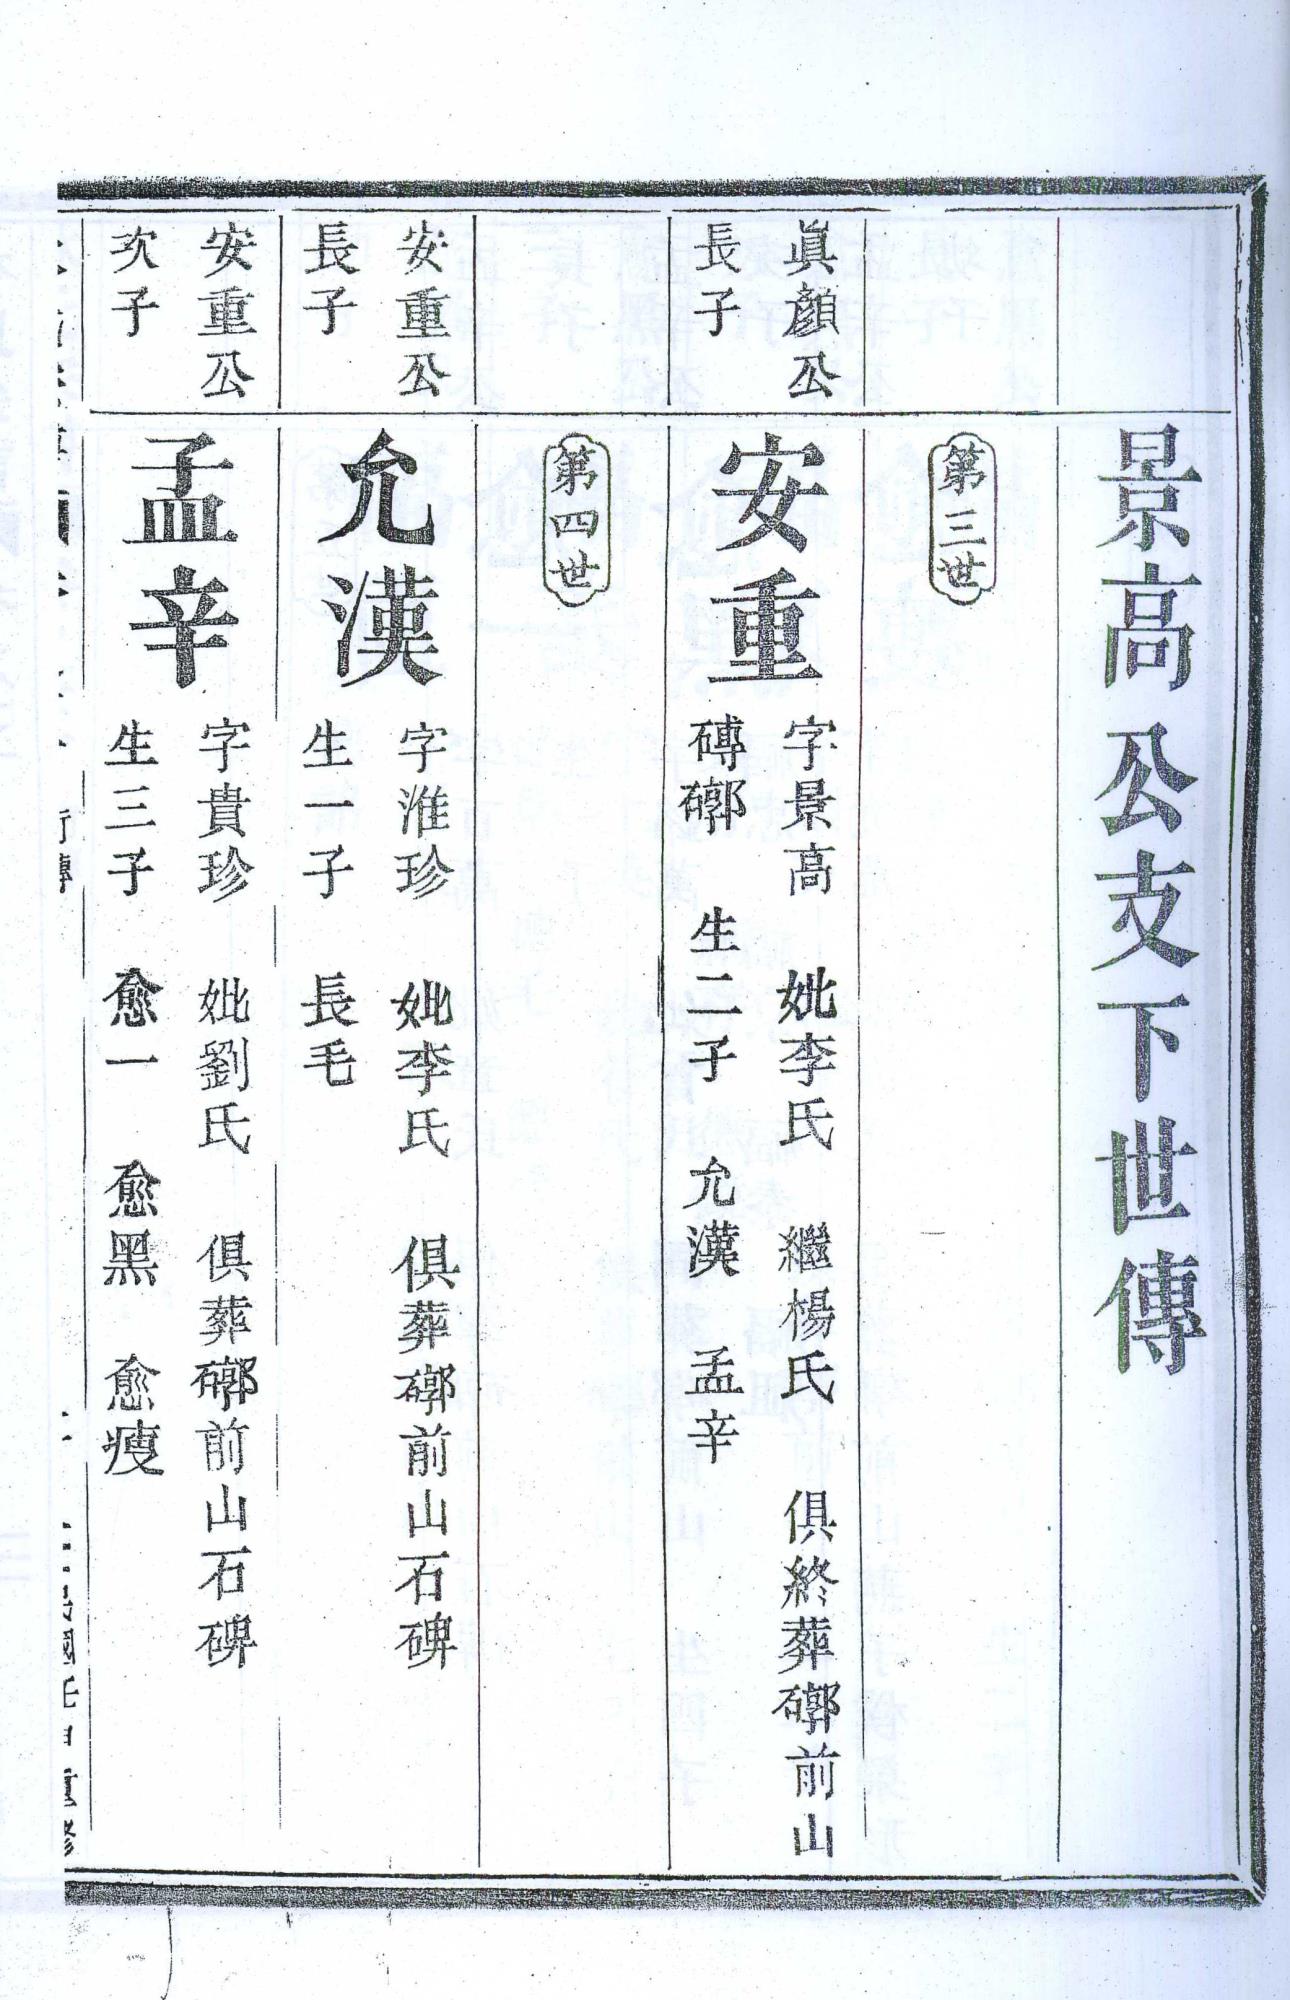 景高公支下世傳
第三世
眞顏公
長子
安重
字景高 妣李氏 繼楊氏 俱終葬𥕏前山
磚𥕏 生二子 允漢 孟辛
第四世
安重公
長子
允漢
字淮珍 妣李氏 俱葬𥕏前山石碑
生一子 長毛
安重公
次子
孟辛
字貴珍 妣劉氏 俱葬𥕏前山石碑
生三子 愈一 愈黑 愈瘦
民國壬申重修